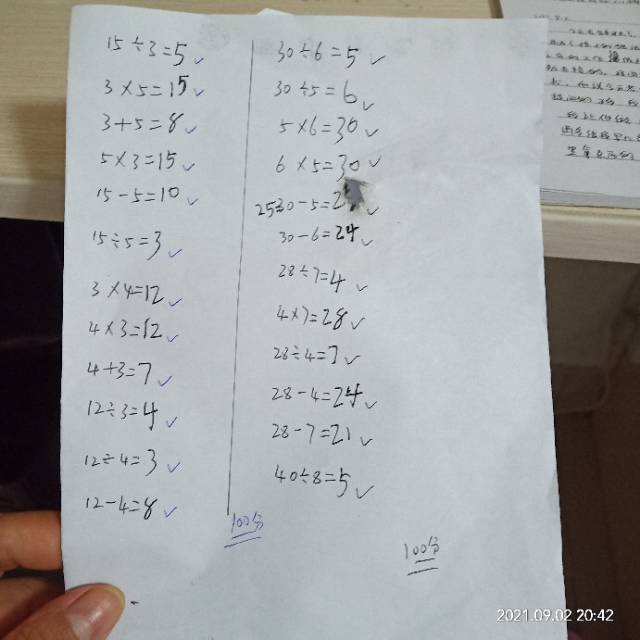 15÷3=5
3×5=15
3+5=8
5×3=15
15-5=10
15÷5=3
3×4=12
4×3=12
4+3=7
12÷3=4
12÷4=3
12-4=8
100分
30÷6=5
30÷5=6
5×6=30
6×5=30
25
30-5=2
30-6=24
28÷7=4
4×7=28
28÷4=7
28-4=24
28-7=21
40÷8=5
100分
2021.09.02 20:42